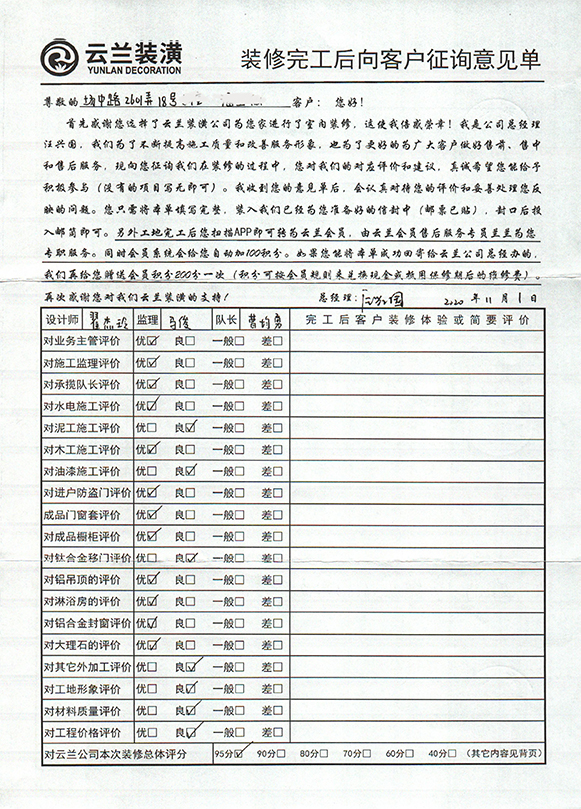 云兰装潢
YUNLAN DECORATION
装修完工后向客户征询意见单
尊敬的 中路2601弄18号 客户：您好！
首先感谢您选择了云兰装潢公司为您家进行了室内装修，这使我倍感荣幸！我是公司总经理
汪兴国，我们为了不断提高施工质量和改善服务形象，也为了更好的为广大客户做好售前、售中
和售后服务，现向您征询我们在装修的过程中，您对我们的对应评价和建议，真诚希望您能给予
积极参与（没有的项目写无即可）。我收到您的意见单后，会认真对待您的评价和妥善处理您反
映的问题。您只需将本单填写完整，装入我们已经为您准备好的信封中（邮票已贴），封口后投
入邮筒即可。另外工地完工后您扫描APP即可转为云兰会员，由云兰会员售后服务专员兰兰为您
专职服务。同时会员系统会给您自动加100积分。如果您能将本单成功回寄给云兰公司总经办的，
我们再给您赠送会员积分200分一次（积分可按会员规则来兑换现金或抵用保修期后的维修费）。
再次感谢您对我们云兰装潢的支持！ 总经理：汪兴国 2020年11月1日
设计师 翟杰玲 监理 马俊 队长 曹均勇 完工后客户装修体验或简要评价
对业务主管评价 优☑ 良□ 一般□ 差□
对施工监理评价 优☑ 良□ 一般□ 差□
对承揽队长评价 优☑ 良□ 一般□ 差□
对水电施工评价 优☑ 良□ 一般□ 差□
对泥工施工评价 优□ 良☑ 一般□ 差□
对木工施工评价 优☑ 良□ 一般□ 差□
对油漆施工评价 优□ 良☑ 一般□ 差□
对进户防盗门评价 优☑ 良□ 一般□ 差□
成品门窗套评价 优☑ 良□ 一般□ 差□
对成品橱柜评价 优☑ 良□ 一般□ 差□
对钛合金移门评价 优□ 良☑ 一般□ 差□
对铝吊顶的评价 优☑ 良□ 一般□ 差□
对淋浴房的评价 优☑ 良□ 一般□ 差□
对铝合金封窗评价 优☑ 良□ 一般□ 差□
对大理石的评价 优☑ 良□ 一般□ 差□
对其它外加工评价 优□ 良☑ 一般□ 差□
对工地形象评价 优□ 良☑ 一般□ 差□
对材料质量评价 优□ 良☑ 一般□ 差□
对工程价格评价 优□ 良☑ 一般□ 差□
对云兰公司本次装修总体评分 95分☑ 90分□ 80分□ 70分□ 60分□ 40分□ （其它内容见背页）